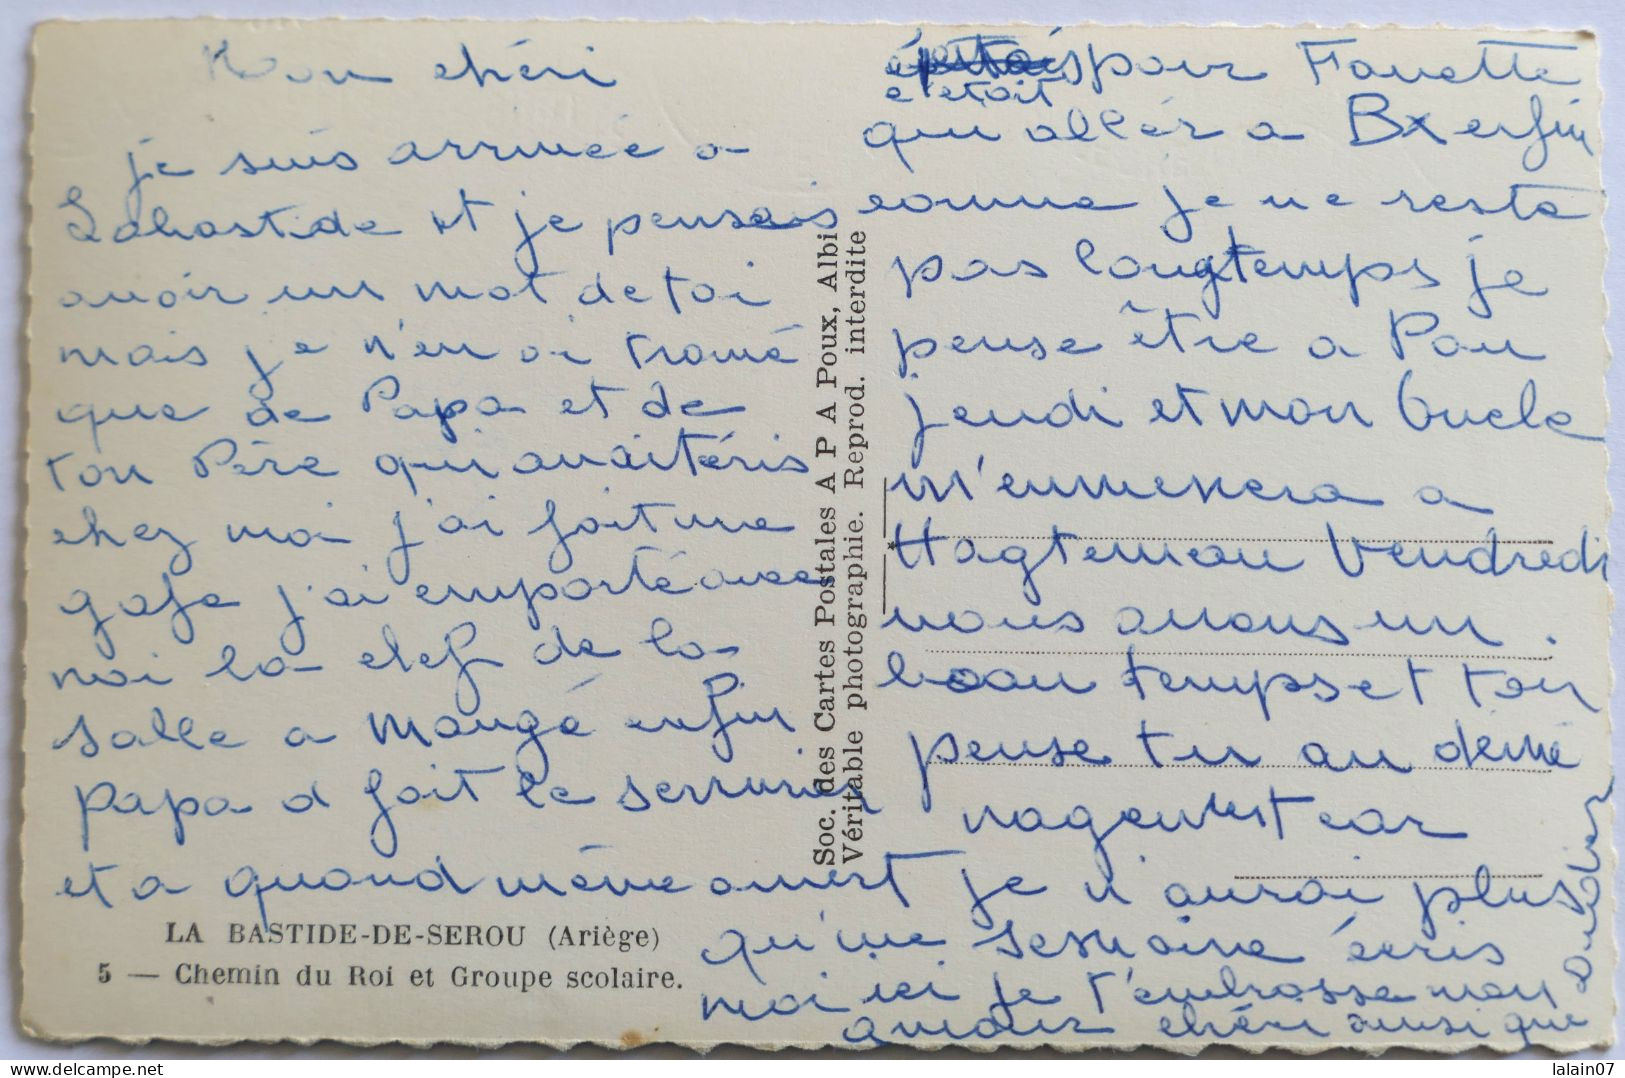 Mon chéri
je suis arrivée a
Labastide et je pensais
avoir un mot de toi
mais je n'en ai trouvé
que de Papa et de
ton Père qui avait écris
chez moi j'ai fait une
gafe j'ai emporté avec
moi la clef de la
salle a mangé enfin
Papa a fait le serrurier
et a quand même ouvert
c'était pour Fanette
qui aller a Bx enfin
comme je ne reste
pas longtemps je
pense être a Pau
jeudi et mon oncle
m'emmenera a
Hagtemau Vendredi
nous avons un
beau temps et toi
pense tu au déme
nagement car
je n'aurai plus
qu'une semaine écris
moi ici je t'embrasse mon
amour chéri ainsi que
LA BASTIDE-DE-SEROU (Ariège)
5 — Chemin du Roi et Groupe scolaire.
Soc. des Cartes Postales A P A Poux, Albi
Véritable photographie. Reprod. interdite
lalain07